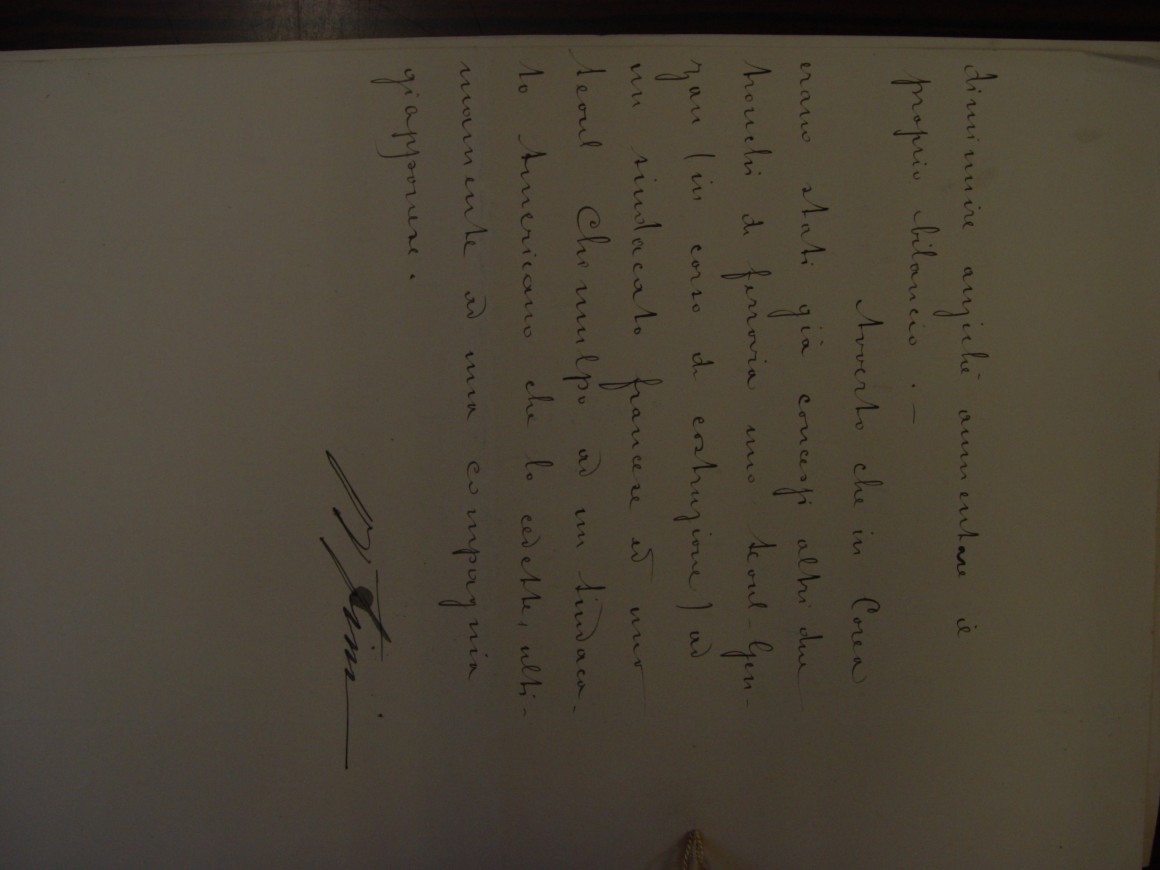 diminuire anziché aumentare il
proprio bilancio. —
Avverto che in Corea
erano stati già concessi altri due
tronchi di ferrovia uno Seoul-Gen-
zan (in corso di costruzione) ad
un sindacato francese ed uno
Seoul Chemulpo ad un Sindaca-
to Americano che lo cedette, ulti-
mamente ad una compagnia
giapponese.